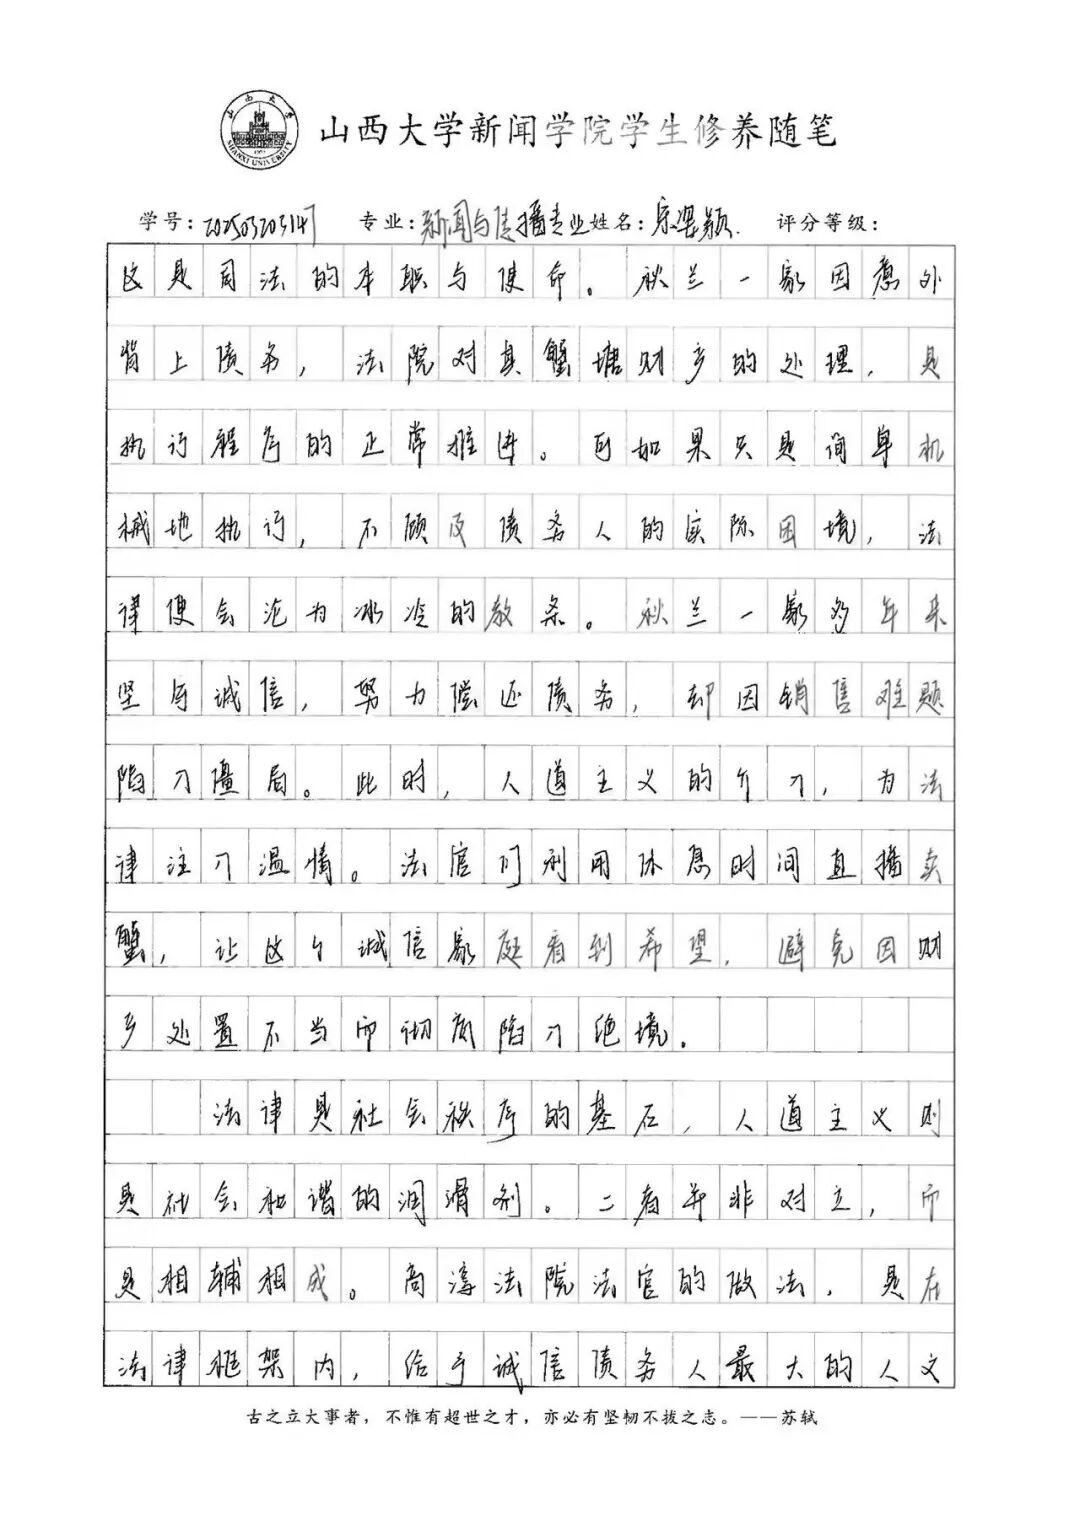 山西大学新闻学院学生修养随笔
学号：202503203147 专业：新闻与传播专业 姓名：宋 颖 评分等级：
这是司法的本职与使命。秋兰一家因意外
背上债务，法院对其蟹塘财产的处理，是
执行程序的正常推进。可如果只是简单机
械地执行，不顾及债务人的实际困境，法
律便会沦为冰冷的教条。秋兰一家多年来
坚守诚信，努力偿还债务，却因销售难题
陷入僵局。此时，人道主义的介入，为法
律注入温情。法官们利用休息时间直播卖
蟹，让这个诚信家庭看到希望，避免因财
产处置不当而彻底陷入绝境。
法律是社会秩序的基石，人道主义则
是社会和谐的润滑剂。二者并非对立，而
是相辅相成。高淳法院法官的做法，是在
法律框架内，给予诚信债务人最大的人文
古之立大事者，不惟有超世之才，亦必有坚韧不拔之志。——苏轼